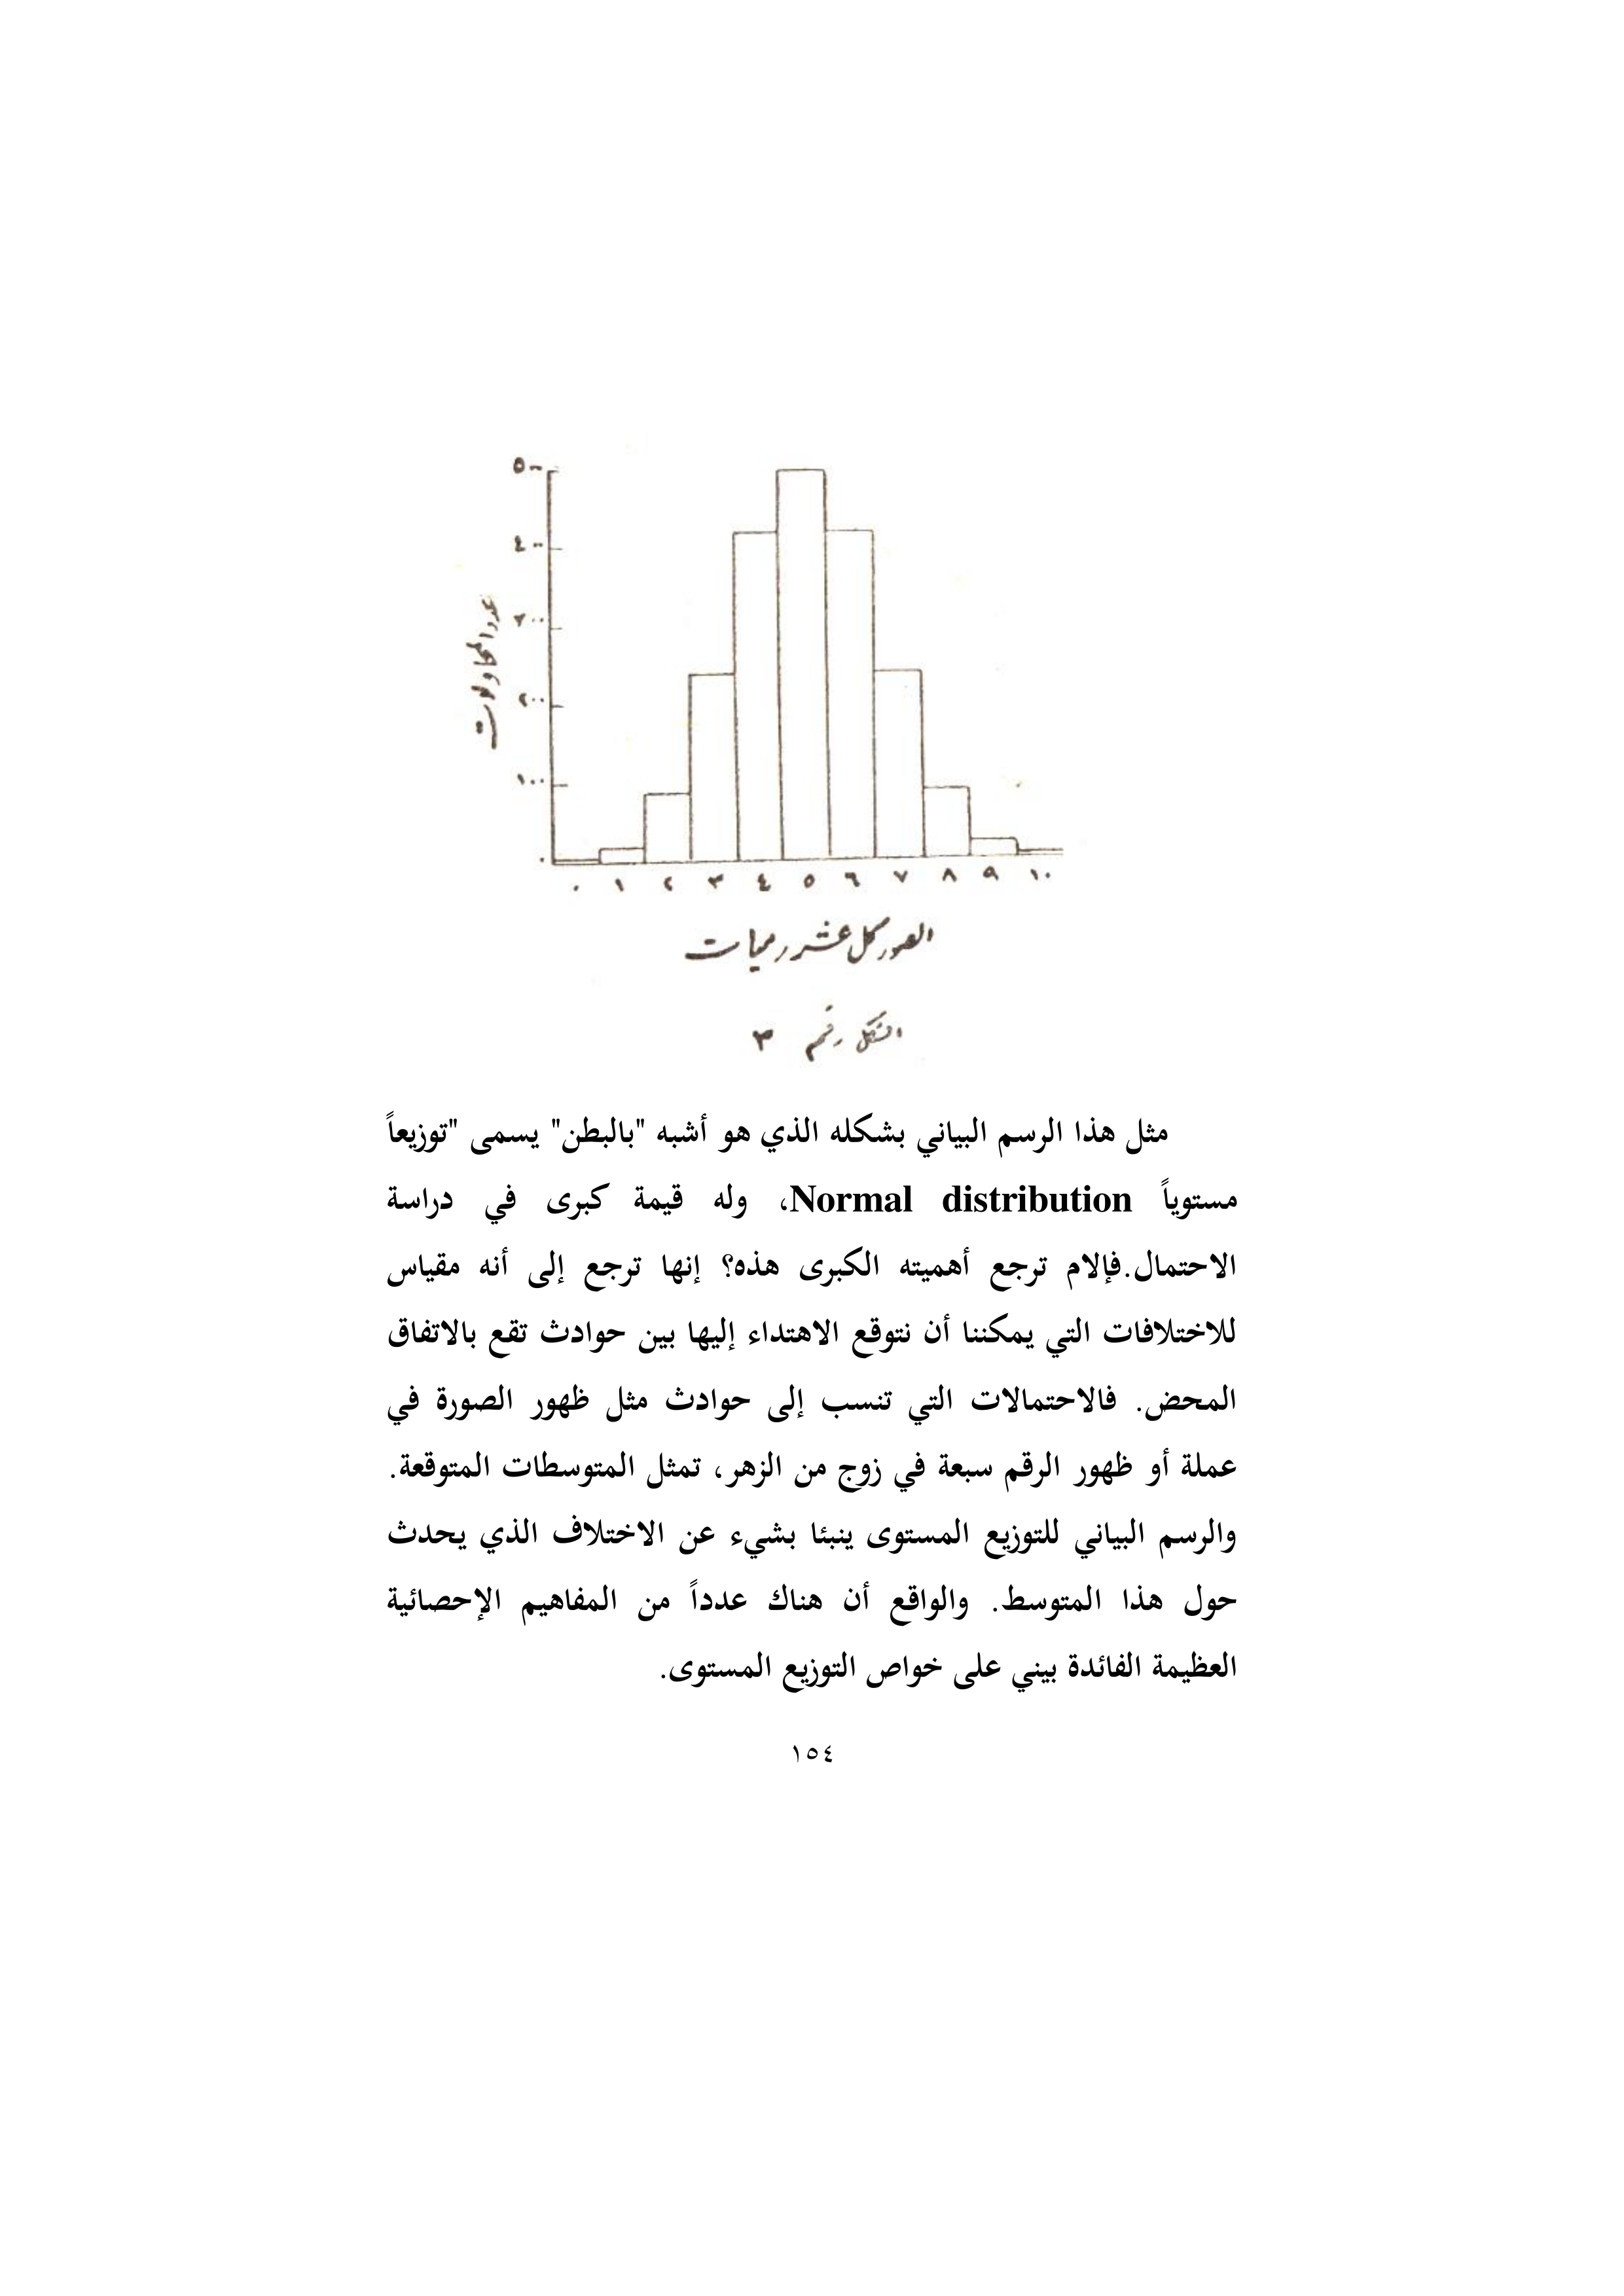 ٥٠٠
٤٠٠
٣٠٠
٢٠٠
١٠٠
٠
عدد المحاولات
٠ ١ ٢ ٣ ٤ ٥ ٦ ٧ ٨ ٩ ١٠
الصور كل عشر رميات
الشكل رقم ٣
مثل هذا الرسم البياني بشكله الذي هو أشبه "بالبطن" يسمى "توزيعاً
مستوياً Normal distribution، وله قيمة كبرى في دراسة
الاحتمال.فإلام ترجع أهميته الكبرى هذه؟ إنها ترجع إلى أنه مقياس
للاختلافات التي يمكننا أن نتوقع الاهتداء إليها بين حوادث تقع بالاتفاق
المحض. فالاحتمالات التي تنسب إلى حوادث مثل ظهور الصورة في
عملة أو ظهور الرقم سبعة في زوج من الزهر، تمثل المتوسطات المتوقعة.
والرسم البياني للتوزيع المستوى ينبئا بشيء عن الاختلاف الذي يحدث
حول هذا المتوسط. والواقع أن هناك عدداً من المفاهيم الإحصائية
العظيمة الفائدة بيني على خواص التوزيع المستوى.
١٥٤